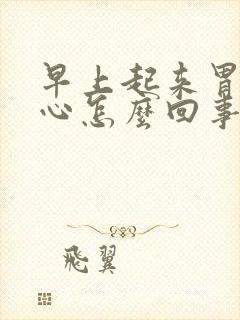 早上起来胃
心怎麼回事
飛翼